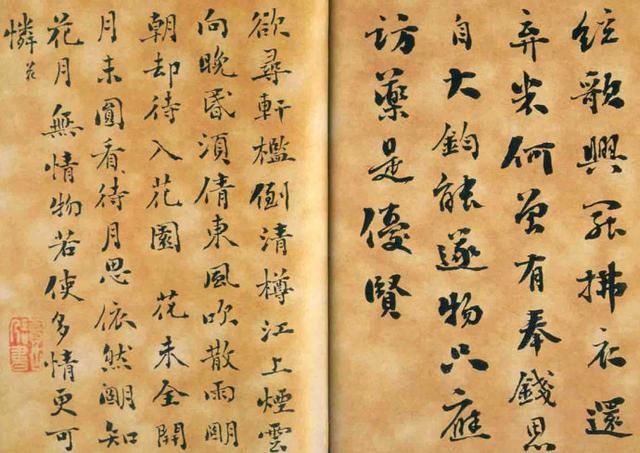 絃歌興罷拂衣還
弃何曾有奉錢思
自大鈞能遂物只應
訪藥是優賢
欲尋軒檻倒清樽江上煙雲
向晚昏須倩東風吹散雨朙
朝却待入花園 花未全開
月未圓看待月思依然朙知
花月無情物若使多情更可
憐